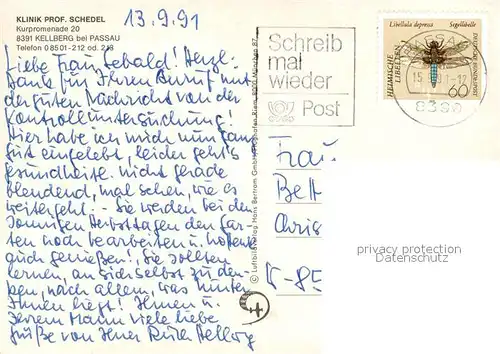 KLINIK PROF. SCHEDEL
Kurpromenade 20
8391 KELLBERG bei PASSAU
Telefon 0 85 01-212 od. 213
13.9.91
Liebe Frau Sebald! Herzl.
Dank für Ihren Anruf mit
der guten Nachricht von der
Kontrolluntersuchung!
Hier habe ich mich nun ganz
gut eingelebt, leider geht's
gesundheitl. nicht gerade
blendend, mal sehen, wie es
weitergeht. - Sie werden bei den
sonnigen Herbsttagen den Gar-
ten noch bearbeiten u. hoffentl.
auch genießen! Sie sollten
lernen, an sich selbst zu den-
ken, nach allem, was hinter
Ihnen liegt! Ihnen u.
Ihrem Mann viele liebe
Grüße von Ihrer Ruth Hellwig
© Luftbildverlag Hans Bertram GmbH, Flughafen Riem, München 87
Schreib
mal
wieder
Post
Libellula depressa Segellibelle
HEIMISCHE LIBELLEN
DEUTSCHE BUNDESPOST
60
PASSAU
15. -12
8390
Frau
Bett
Chris
privacy protection
W-85